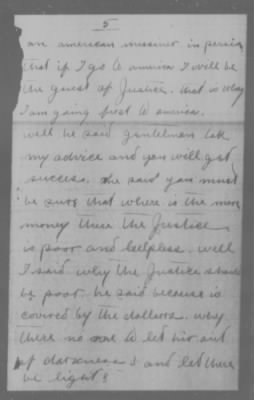 5
an american messiner in persia
that if I go to america I will be
the guest of Justice. that is why
I am going first to america.
well he said gentelmen tak
my advice and you will get
success. he said you must
be sure that where is the more
money there the Justice
is poor and helpless. well
I said why the Justice should
be poor he said because is
covered by the dollars. why
there no one to let him out
of darkness and let there
be light!